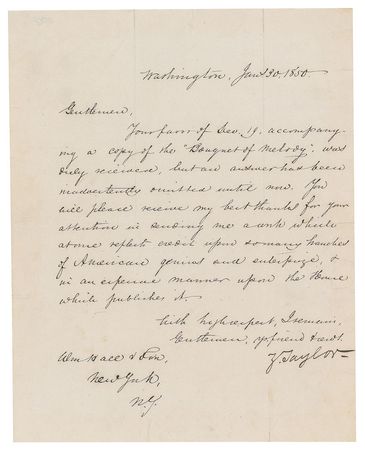 Washington, Jany 30. 1850.
Gentlemen,
Your favor of Dec. 19. accompany-
ing a copy of the "Bouquet of Melody", was
duly received, but an answer has been
inadvertently omitted until now. You
will please receive my best thanks for your
attention in sending me a work which
at once reflects credit upon so many branches
of American genius and enterprize, &
in an especial manner upon the House
which publishes it.
With high respect, I remain,
Gentlemen, yr friend & servt.
Z. Taylor
Wm Hall & Son,
New York,
N.Y.